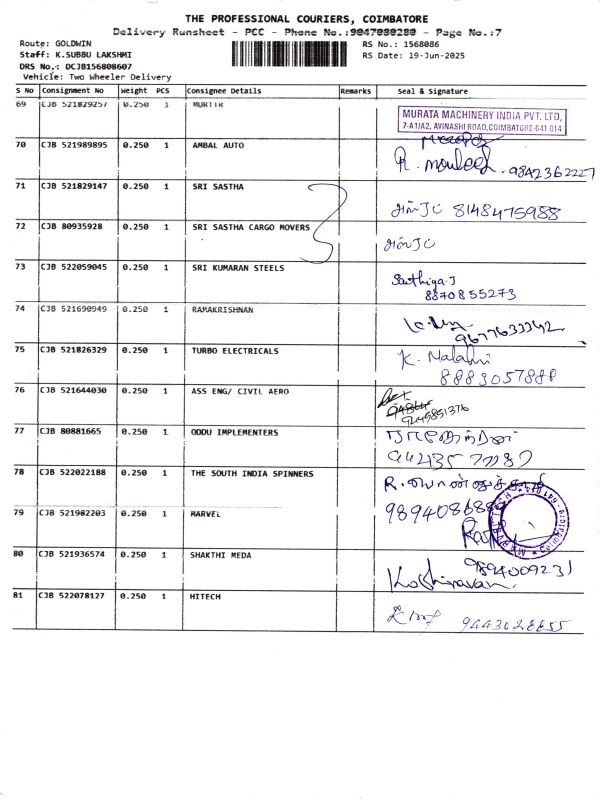 THE PROFESSIONAL COURIERS, COIMBATORE
Delivery Runsheet - PCC - Phone No.:9047080280 - Page No.:7
Route: GOLDWIN RS No.: 1568086
Staff: K.SUBBU LAKSHMI RS Date: 19-Jun-2025
DRS No.: DCJB156808607
Vehicle: Two Wheeler Delivery
S No Consignment No Weight PCS Consignee Details Remarks Seal & Signature
69 CJB 521829257 0.250 1
MURATA MACHINERY INDIA PVT. LTD,
7-A1/A2, AVINASHI ROAD, COIMBATORE-641 014
70 CJB 521989895 0.250 1 AMBAL AUTO
9842362227
71 CJB 521829147 0.250 1 SRI SASTHA
8148475988
72 CJB 80935928 0.250 1 SRI SASTHA CARGO MOVERS
73 CJB 522059045 0.250 1 SRI KUMARAN STEELS
Sathiga.J
8870855273
74 CJB 521690949 0.250 1 RAMAKRISHNAN
9677633342
75 CJB 521826329 0.250 1 TURBO ELECTRICALS
K. Malathi
8883057888
76 CJB 521644030 0.250 1 ASS ENG/ CIVIL AERO
9245851376
77 CJB 80881665 0.250 1 ODDU IMPLEMENTERS
78 CJB 522022188 0.250 1 THE SOUTH INDIA SPINNERS
79 CJB 521982203 0.250 1 MARVEL
80 CJB 521936574 0.250 1 SHAKTHI MEDA
9894009231
81 CJB 522078127 0.250 1 HITECH